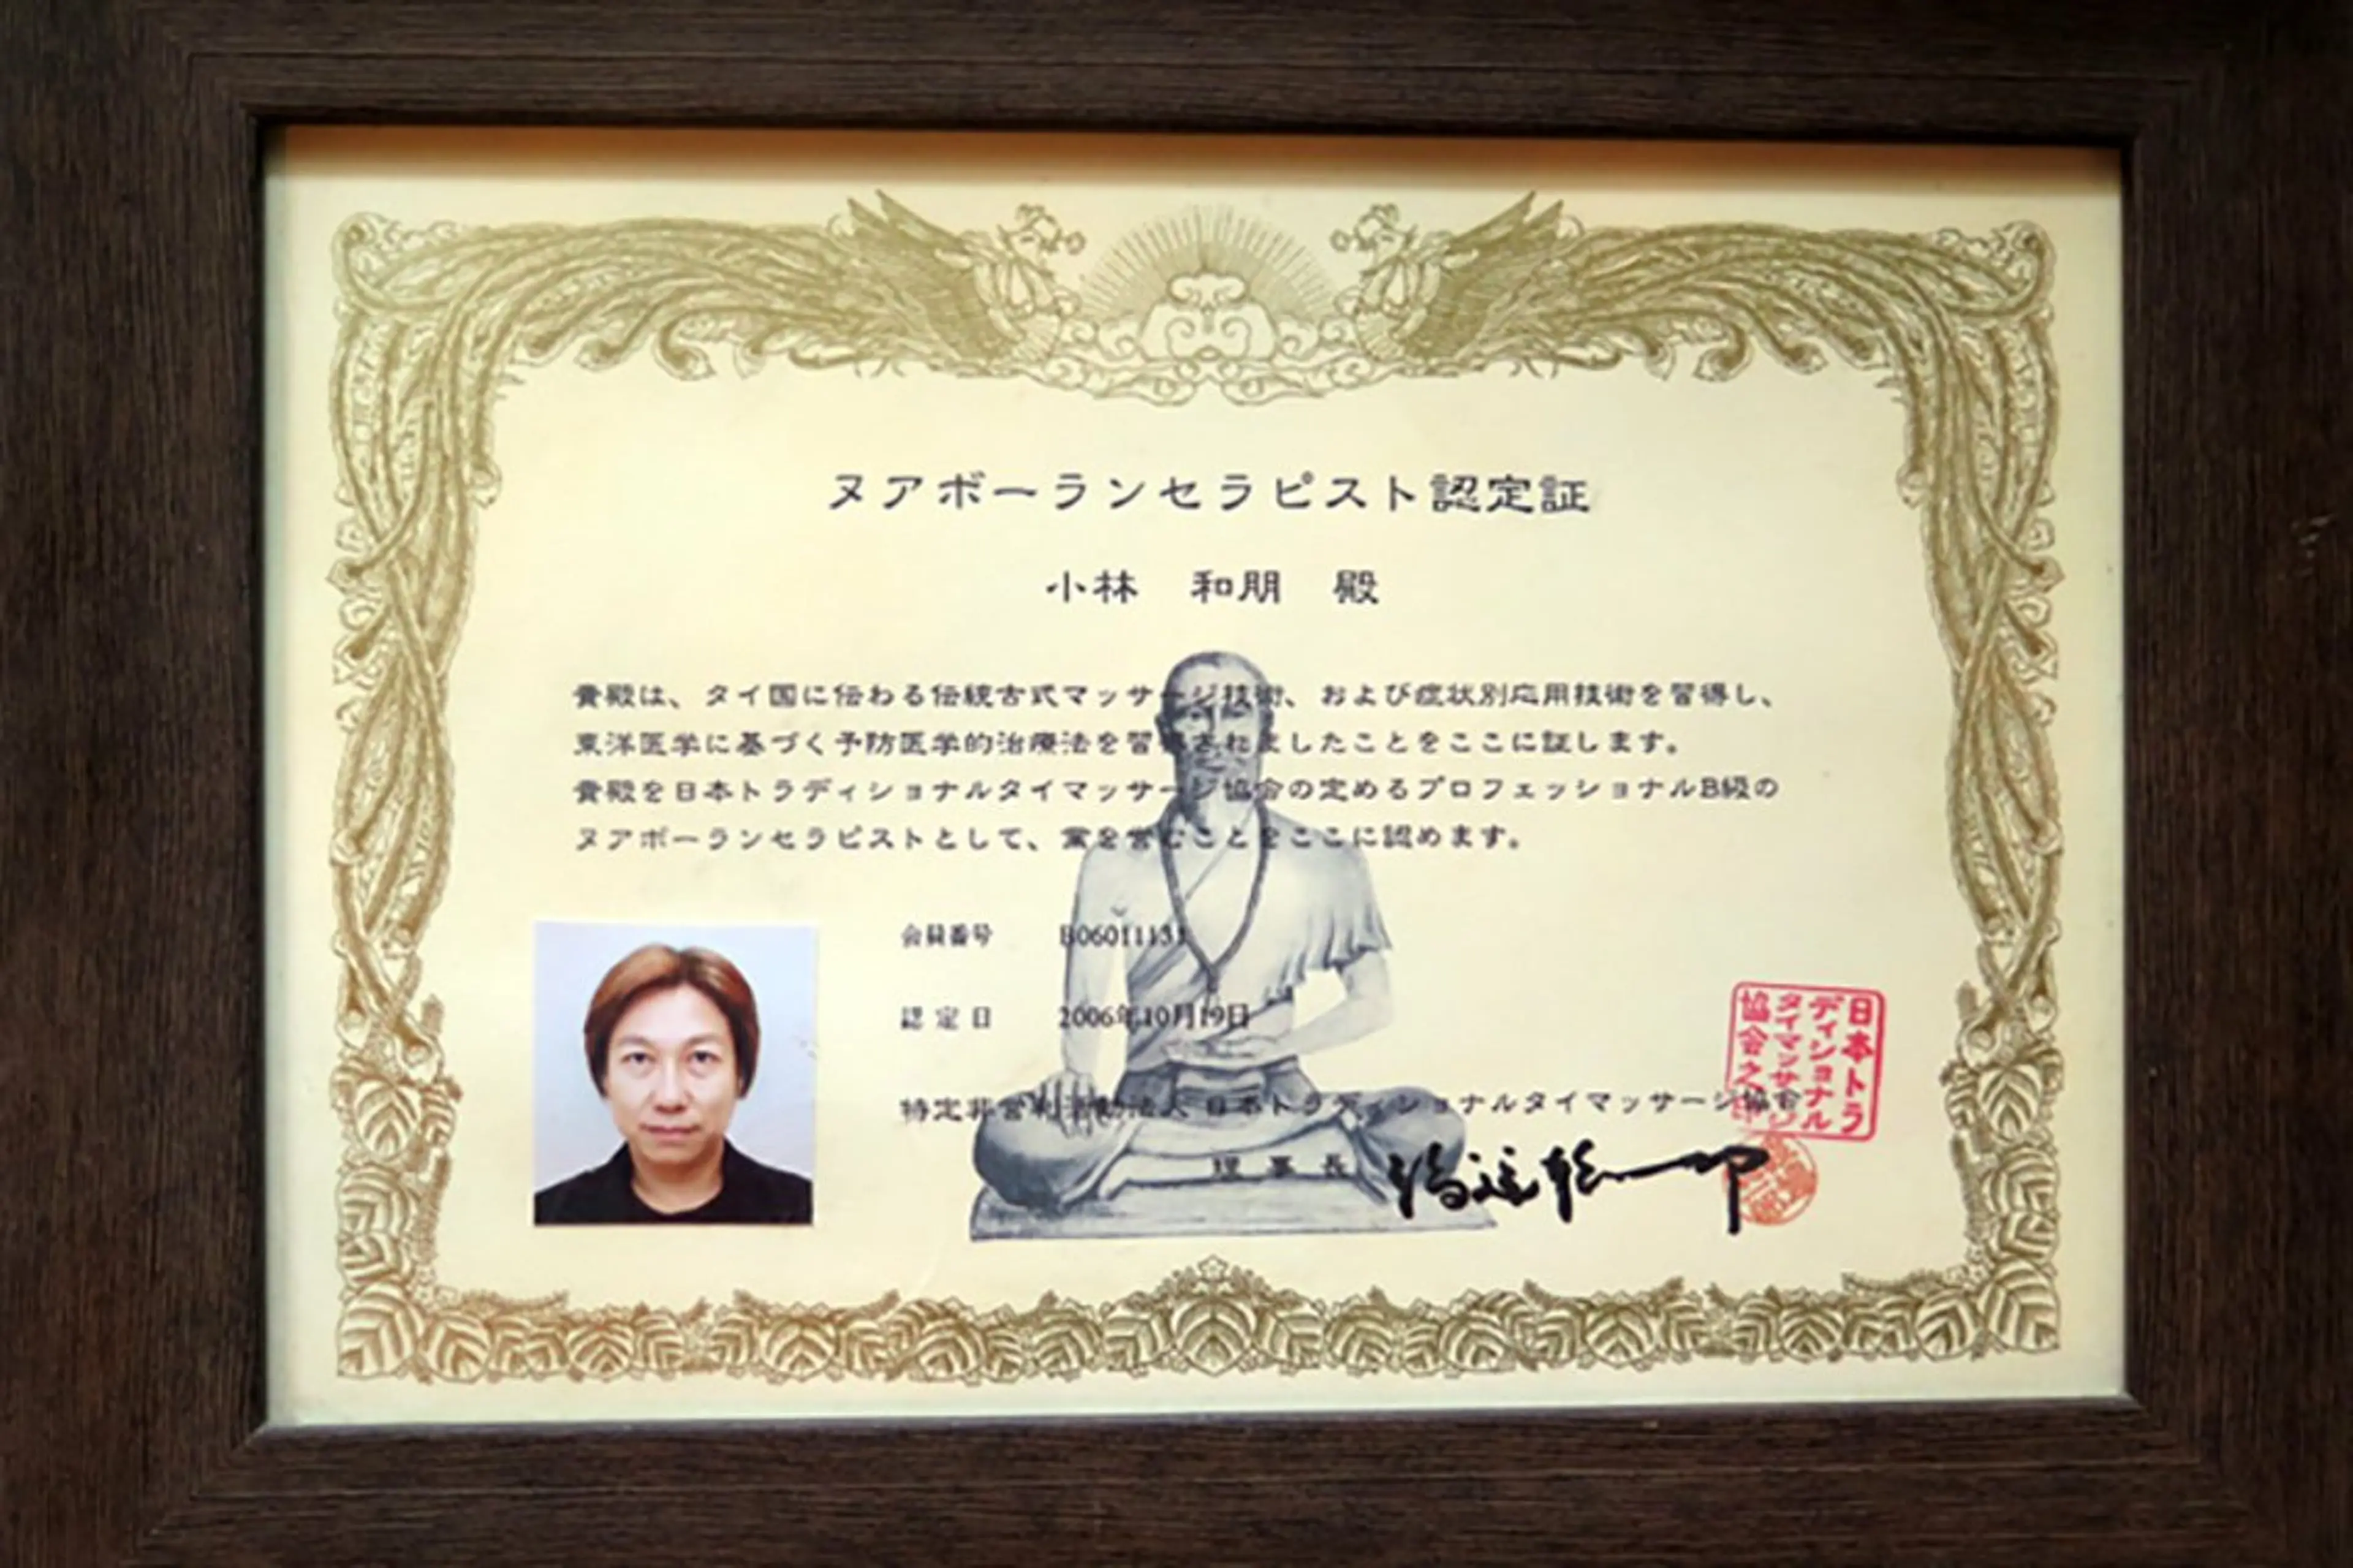 ヌアボーランセラピスト認定証
小林 和朋 殿
貴殿は、タイ国に伝わる伝統古式マッサージ技術、および症状別応用技術を習得し、
東洋医学に基づく予防医学的治療法を習得されましたことをここに証します。
貴殿を日本トラディショナルタイマッサージ協会の定めるプロフェッショナルB級の
ヌアボーランセラピストとして、業を営むことをここに認めます。
会員番号 B06011131
認定日 2006年10月19日
特定非営利活動法人 日本トラディショナルタイマッサージ協会
理事長
日本トラ
ディショナル
タイマッサージ
協会之印